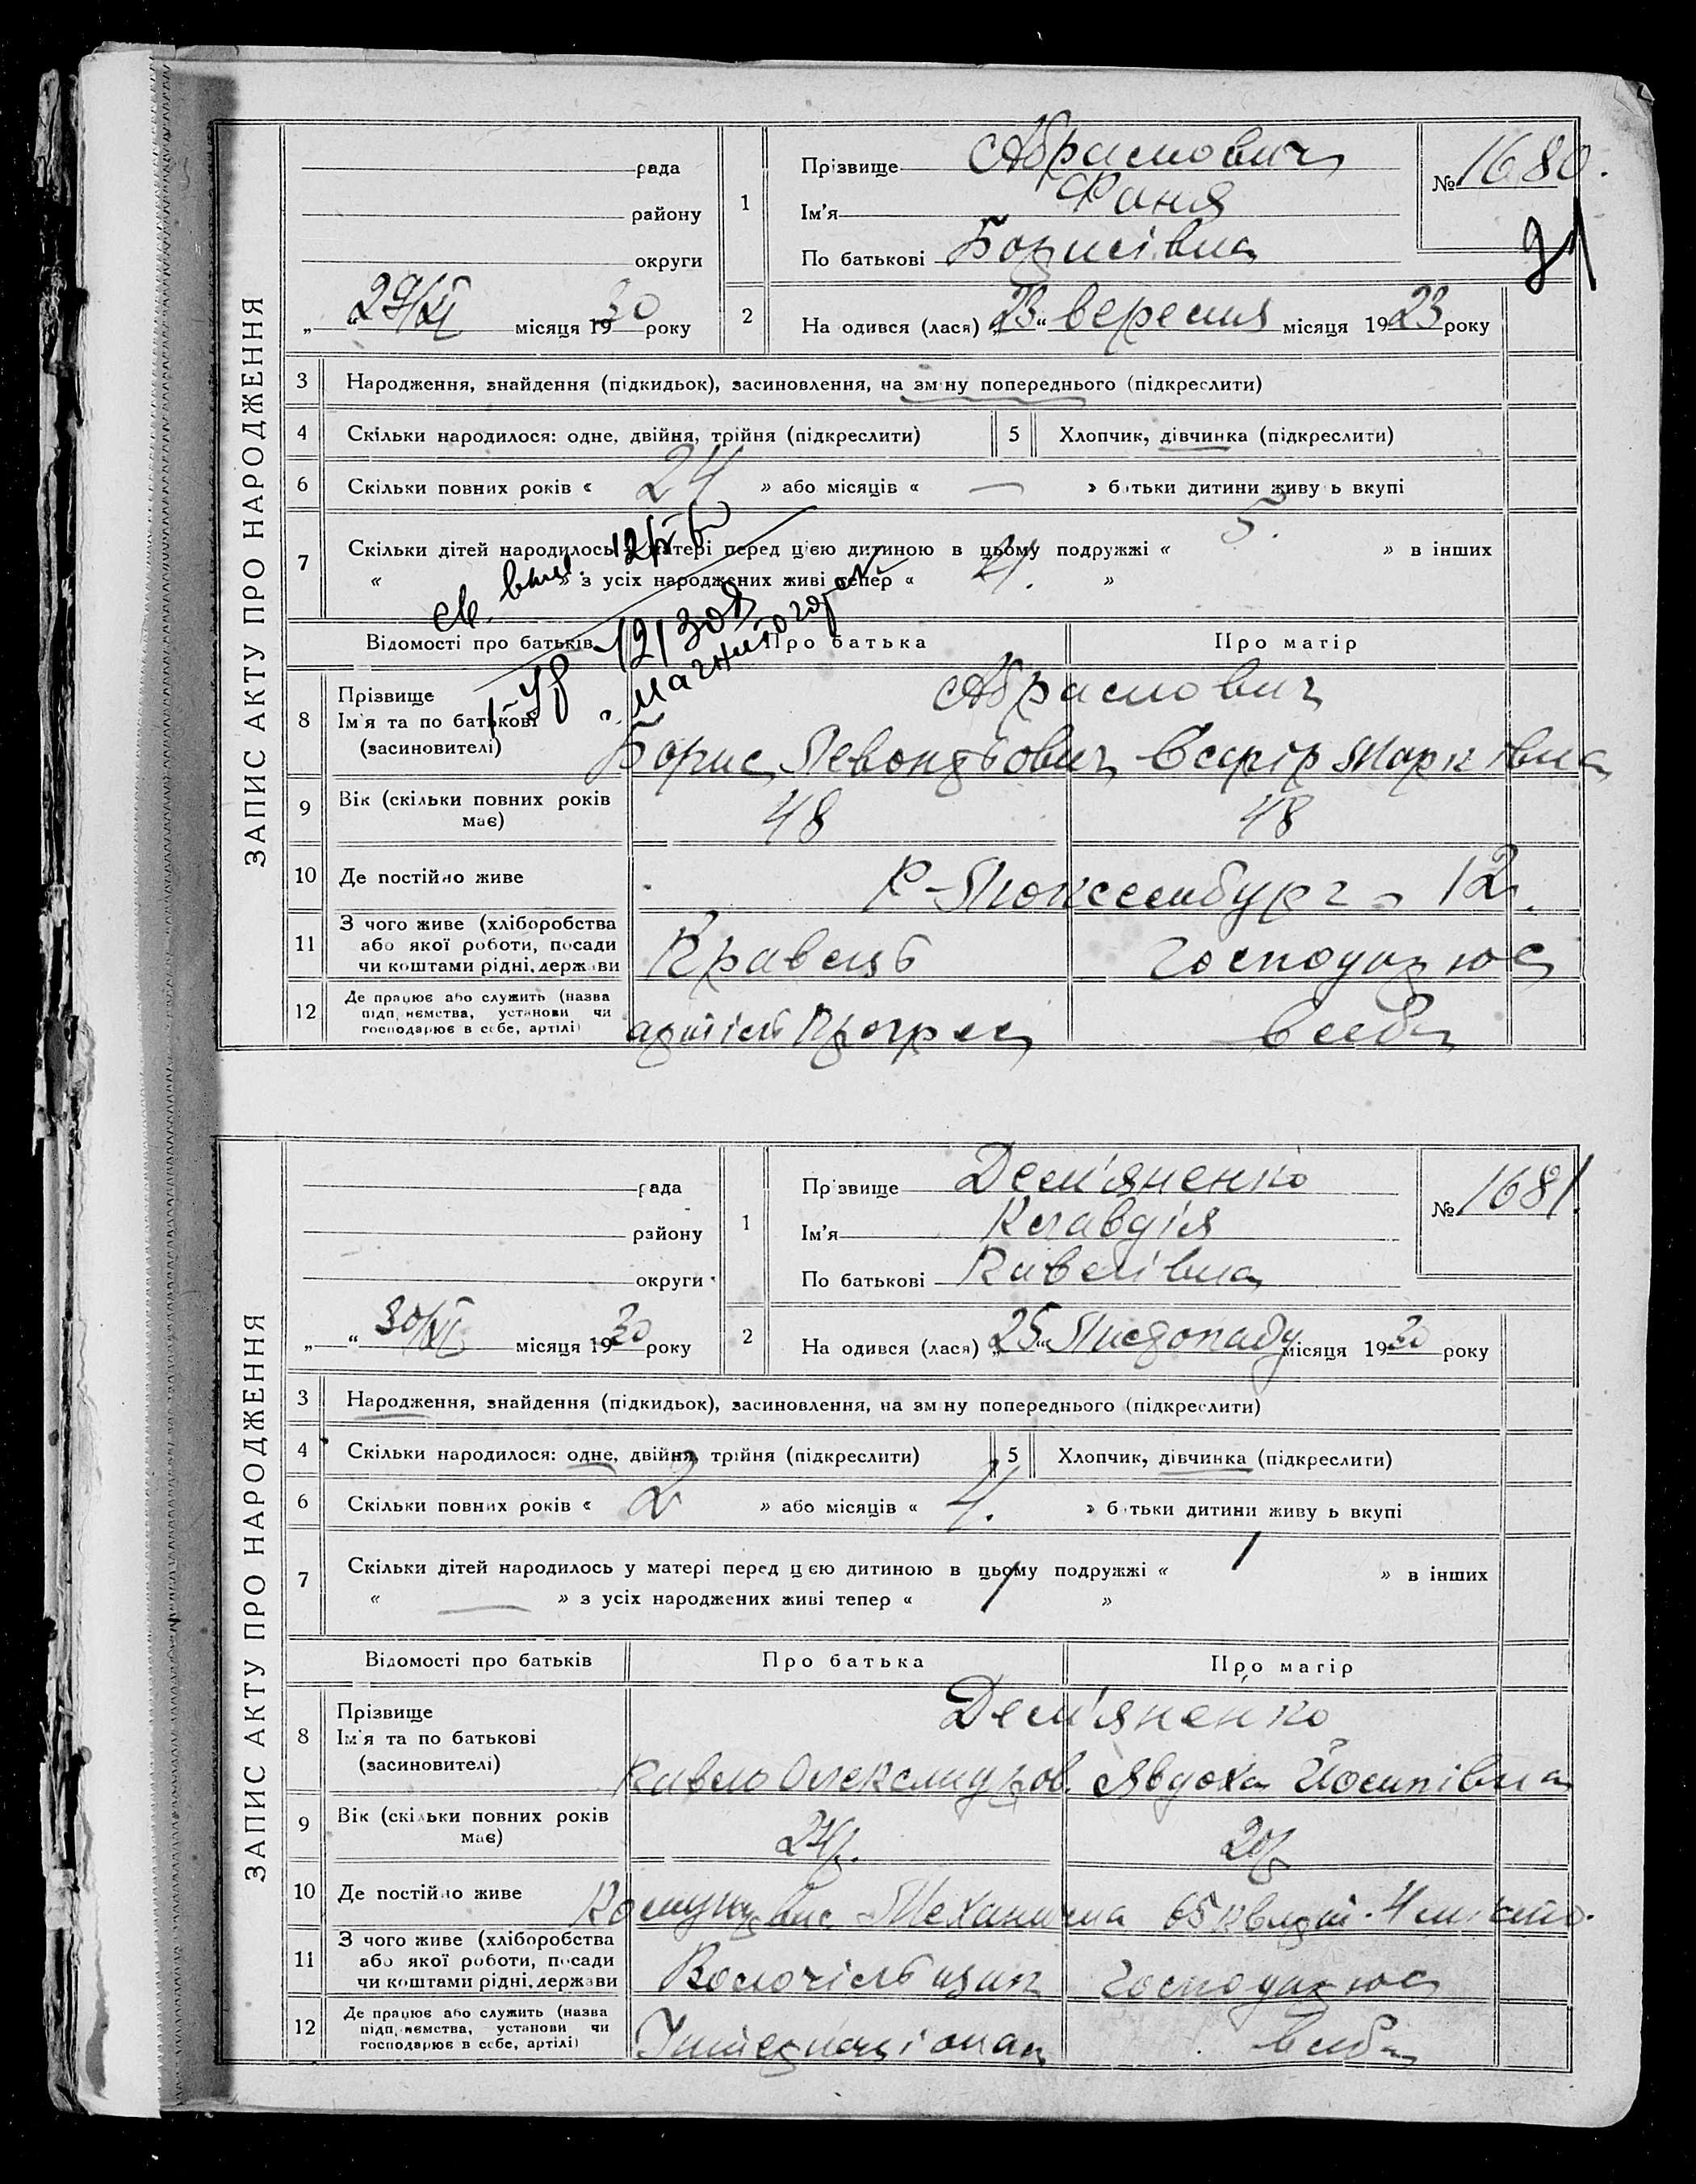 ЗАПИС АКТУ ПРО НАРОДЖЕННЯ
рада
району
округи
„ “ 29/XI місяця 1930 року
1
Прізвище Абрамович
Ім'я Фаня
По батькові Борисівна
№ 1680.
2
На одився (лася) „23“ вересня місяця 1923 року
3 Народження, знайдення (підкидьок), засиновлення, на зм ну попереднього (підкреслити)
4 Скільки народилося: одне, двійня, трійня (підкреслити) 5 Хлопчик, дівчинка (підкреслити)
6 Скільки повних років « 24 » або місяців « — » б тьки дитини живу ь вкупі
7 Скільки дітей народилось у матері перед цією дитиною в цьому подружжі « 5. » в інших
« » з усіх народжених живі тепер « 4. »
св. выд.
Відомості про батьків Про батька Про матір
8 Прізвище
Ім'я та по батькові
(засиновителі)
Абрамович
Борис Левонтьович Есфір Марківна
9 Вік (скільки повних років має) 48 48
10 Де постійно живе Р-Люксембург 12.
11 З чого живе (хліборобства
або якої роботи, посади
чи коштами рідні, держави
Кравець господарює
12 Де працює або служить (назва
підп иємства, установи чи
господарює в себе, артілі)
артіль Прогрес в себе
ЗАПИС АКТУ ПРО НАРОДЖЕННЯ
рада
району
округи
„ “ 30/XI місяця 1930 року
1
Пр звище Дем'яненко
Ім'я Клавдія
По батькові Павлівна
№ 1681.
2
На одився (лася) „25“ Листопаду місяця 1930 року
3 Народження, знайдення (підкидьок), засиновлення, на зм ну попереднього (підкреслити)
4 Скільки народилося: одне, двійня, трійня (підкреслити) 5 Хлопчик, дівчинка (підкреслити)
6 Скільки повних років « 2 » або місяців « 4. » б тьки дитини живу ь вкупі
7 Скільки дітей народилось у матері перед цією дитиною в цьому подружжі « 1 » в інших
« — » з усіх народжених живі тепер « 1 »
Відомості про батьків Про батька Про матір
8 Прізвище
Ім'я та по батькові
(засиновителі)
Дем'яненко
Павло Олександров. Явдоха Йосипівна
9 Вік (скільки повних років має) 24р. 20р
10 Де постійно живе Механична 65 кварт. 4
11 З чого живе (хліборобства
або якої роботи, посади
чи коштами рідні, держави
Волочільщик господарює
12 Де працює або служить (назва
підп иємства, установи чи
господарює в себе, артілі)
Інтернаціонал в себе